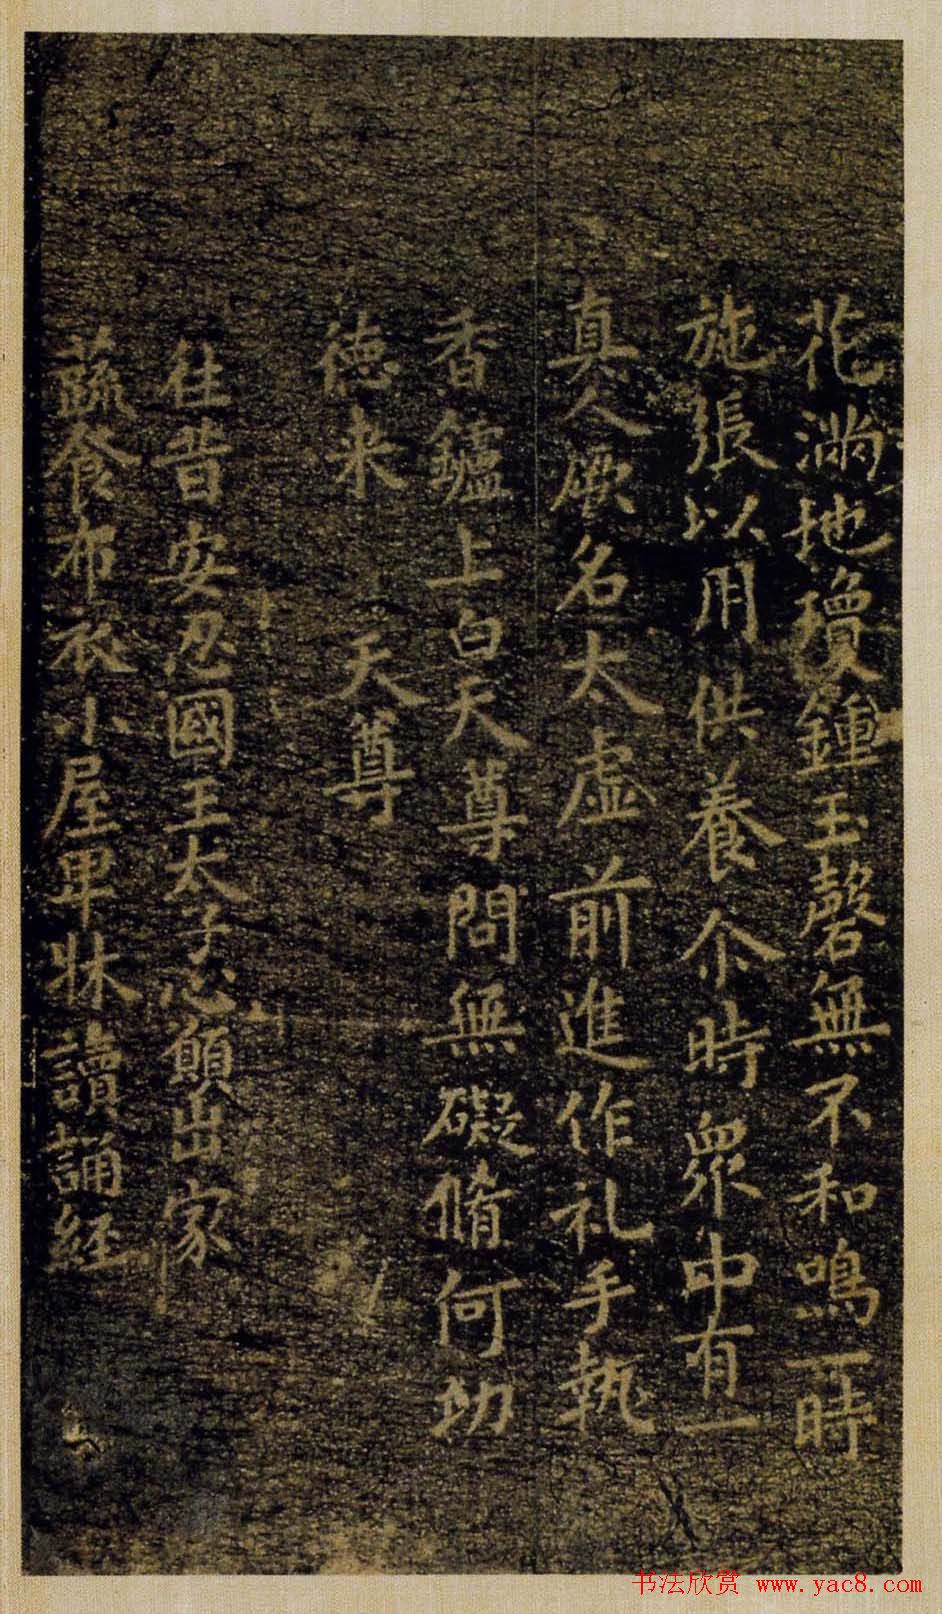 花滿地瓊鍾玉磬無不和鳴一時
施張以用供養尒時眾中有一
真人厥名太虛前進作礼手執
香鑪上白天尊問無礙脩何功
德来 天尊
往昔安忍國王太子心願出家
蔬食布衣小屋卑牀讀誦經
书法欣赏 www.yac8.com